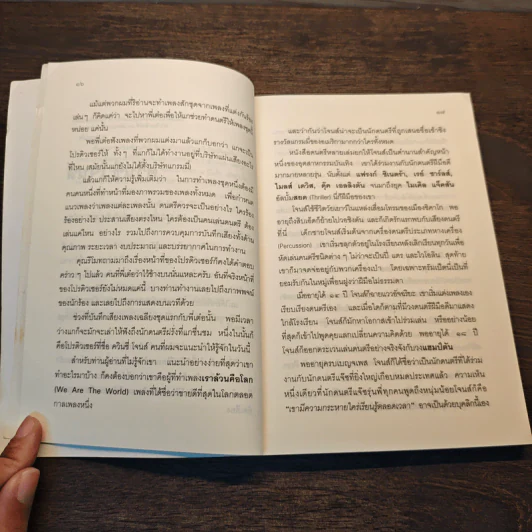 ๑๖
แม้แต่พวกผมที่ริอ่านจะทำเพลงสักชุดจากเพลงที่แต่งกันจริงๆ
เล่นๆ ก็คิดแต่ว่า จะไปหาพี่เต๋อเพื่อให้แกช่วยทำดนตรีให้เพลงชุดนี้
หน่อย แค่นั้น
พอพี่เต๋อฟังเพลงที่พวกผมแต่งมาแล้วแกก็บอกว่า แกจะเป็น
โปรดิวเซอร์ให้ ทั้งๆ ที่แกก็ไม่ได้ทำงานอยู่ที่บริษัทแผ่นเสียงอะไร
ที่ไหน (สมัยนั้นแกยังไม่ได้ตั้งบริษัทแกรมมี่)
แล้วแกก็ให้ความรู้เพิ่มเติมว่า ในการทำเพลงชุดหนึ่งต้องมี
คนคนหนึ่งที่ทำหน้าที่มองภาพรวมของเพลงทั้งหมด เพื่อกำหนด
แนวเพลงว่าเพลงแต่ละเพลงนั้น ดนตรีควรจะเป็นอย่างไร ใครร้อง
ร้องอย่างไร ประสานเสียงตรงไหน ใครต้องเป็นคนเล่นดนตรี ต้อง
เล่นแค่ไหน อย่างไร รวมไปถึงการควบคุมการบันทึกเสียงทั้งด้าน
คุณภาพ ระยะเวลา งบประมาณ และบรรยากาศในการทำงาน
คุณรีโมทถามมาถึงเรื่องหน้าที่ของโปรดิวเซอร์ก็คงได้คำตอบ
คร่าวๆ ไปแล้ว คนที่พี่เต๋อว่าใช้ข้างบนนั่นแหละครับ อันที่จริงหน้าที่
ของโปรดิวเซอร์ยังไม่หมดแค่นี้ บางท่านทำงานเลยไปถึงภาพพจน์
ของนักร้อง และเลยไปถึงการแสดงบนเวทีด้วย
ช่วงที่บันทึกเสียงเพลงเฉลียงชุดแรกกับพี่เต๋อนั้น พอมีเวลา
ว่างแกก็จะมักจะเล่าให้ฟังถึงนักดนตรีฝรั่งที่แกชื่นชม หนึ่งในนั้นก็
คือโปรดิวเซอร์ที่ชื่อ ควินซี่ โจนส์ คนที่ผมจะแนะนำให้รู้จักในวันนี้
สำหรับท่านผู้อ่านที่ไม่รู้จักเขา แนะนำอย่างง่ายที่สุดว่าเขา
ทำอะไรมาบ้าง ก็คงต้องบอกว่าเขาคือผู้ที่ทำเพลงเราล้วนคือโลก
(We Are The World) เพลงที่ได้ชื่อว่าขายดีที่สุดในโลกตลอด
กาลเพลงหนึ่ง
๑๗
และว่ากันว่าโจนส์น่าจะเป็นนักดนตรีที่ถูกเสนอชื่อเข้าชิง
รางวัลแกรมมี่ของอเมริกามากกว่าใครทั้งหมด
หนังสือดนตรีหลายเล่มยกให้โจนส์เป็นตำนานสำคัญหน้า
หนึ่งของอุตสาหกรรมบันเทิง เขาได้ร่วมงานกับนักดนตรีมีฝีมือ
มากมายหลายรุ่น นับตั้งแต่ แฟรงก์ ซิเนตร้า, เรย์ ชาร์ลส์,
ไมลส์ เดวิส, ดุ๊ค เอลลิงตัน จนมาถึงยุค ไมเคิล แจ๊คสัน
อัลบั้มสยอง (Thriller) นี่ก็ฝีมือของเขา
โจนส์ใช้ชีวิตวัยเยาว์ในแหล่งเสื่อมโทรมของเมืองชิคาโก พอ
อายุถึงสิบเอ็ดก็ย้ายไปรดชิงตัน และก็เกิดรักแรกพบกับเสียงดนตรี
ที่นี่ เด็กชายโจนส์เริ่มต้นจากเครื่องดนตรีประเภททางเครื่องตี
(Percussion) เขาเริ่มลุกตัวอยู่ในโรงเรียนหลังเลิกเรียนทุกวันเพื่อ
หัดเล่นเครื่องดนตรีชนิดต่างๆ ไม่ว่าจะเป็นปี่ แตร และไวโอลิน สุดท้าย
เขาก็มาจอดอยู่กับพวกเครื่องเป่า โดยเฉพาะทรัมเป็ตนี่เป็นที่
ยอมรับกันในหมู่เพื่อนฝูงว่าฝีมือไม่ธรรมดา
เมื่ออายุได้ ๑๕ ปี โจนส์ก็ฉายแววอัจฉริยะ เขาเริ่มแต่งเพลงเอง
เรียบเรียงดนตรีเอง และเมื่อใดก็ตามที่มีวงดนตรีมีฝีมือดีมาแสดง
ใกล้โรงเรียน โจนส์ก็มักหาโอกาสเข้าไปร่วมเล่น หรืออย่างน้อย
ที่สุดก็เข้าไปพูดคุยแลกเปลี่ยนความคิดด้วย พออายุได้ ๑๘ ปี
โจนส์ก็ออกตระเวนเล่นดนตรีอย่างจริงจังกับวงแฮมป์ตัน
พออายุครบเบญจเพส โจนส์ก็ได้ชื่อว่าเป็นนักดนตรีที่ได้ร่วม
งานกับนักดนตรีแจ๊ซที่ยิ่งใหญ่เกือบหมดประเทศแล้ว ความเห็น
หนึ่งเดียวที่นักดนตรีแจ๊ซรุ่นพี่ทุกคนพูดถึงหนุ่มน้อยโจนส์ก็คือ
"เขามีความกระหายใคร่เรียนรู้ตลอดเวลา" อาจเป็นด้วยบุคลิกนี้เอง